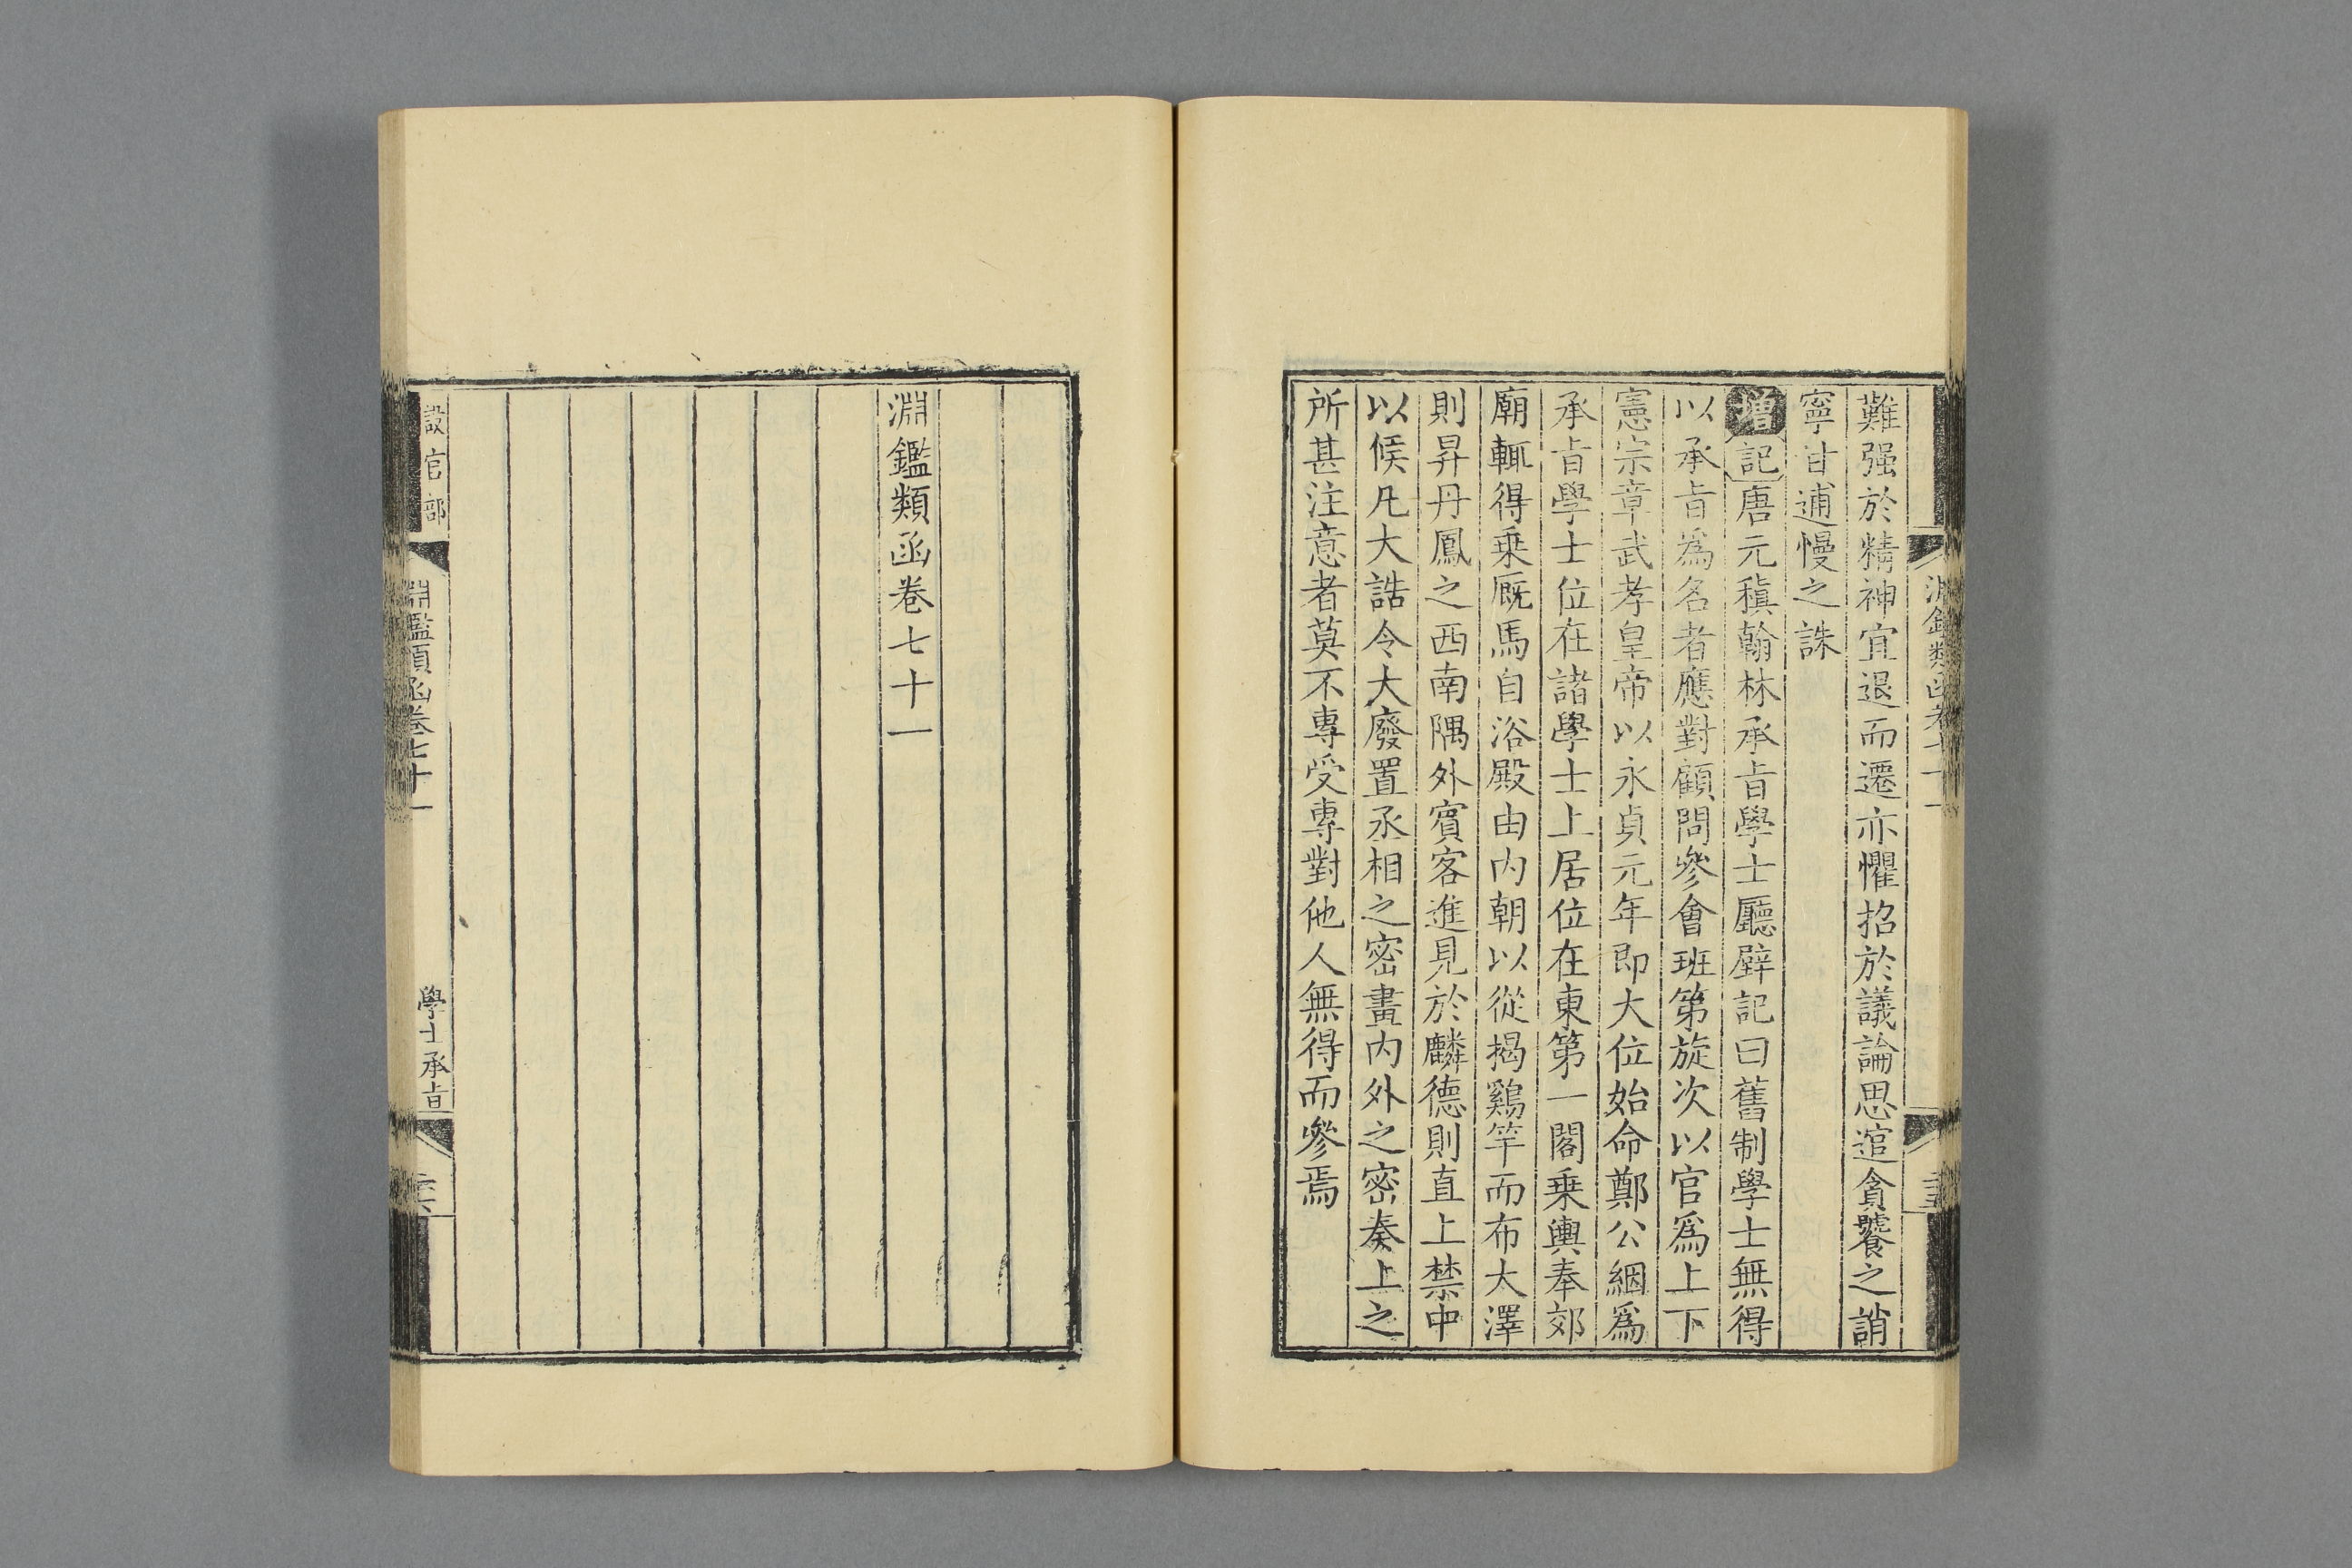 難强於精神宜退而遷亦懼招於議論思逭貪饕之誚
寧甘逋慢之誅
增記唐元稹翰林承旨學士廳壁記曰舊制學士無得
以承旨為名者應對顧問參會班第旋次以官爲上下
憲宗章武孝皇帝以永貞元年即大位始命鄭公絪爲
承旨學士位在諸學士上居位在東第一閣乗輿奉郊
廟輒得乗厩馬自浴殿由内朝以從揭鷄竿而布大澤
則昇丹鳳之西南隅外賓客進見於麟德則直上禁中
以候凡大誥令大廢置丞相之密畫内外之密奏上之
所甚注意者莫不專受專對他人無得而參焉
淵鑑類函卷七十一
設官部
淵鑑類函卷七十一
學士承旨